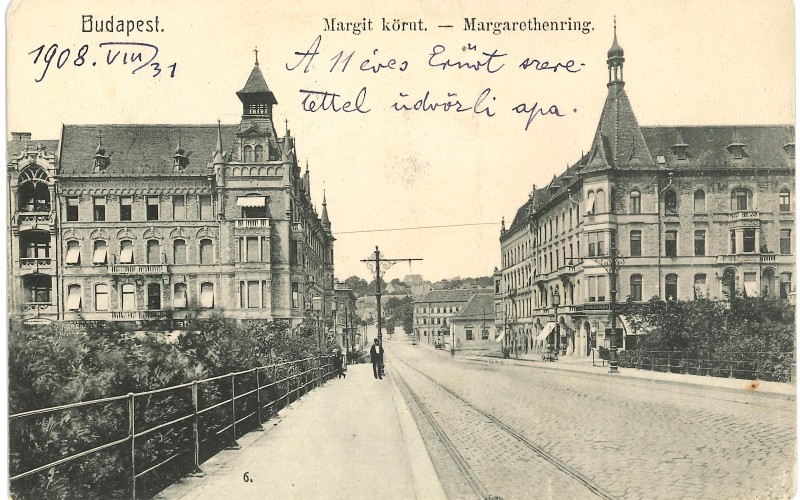 Budapest.
Margit körut. — Margarethenring.
1908. VIII/31
A 11 éves Ernőt szere-
tettel üdvözli apa.
6.